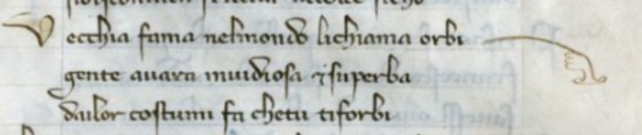 Vecchia fama nelmondo lichiama orbi
gente auara inuidiosa &superba
dailor costumi fa chetu tiforbi